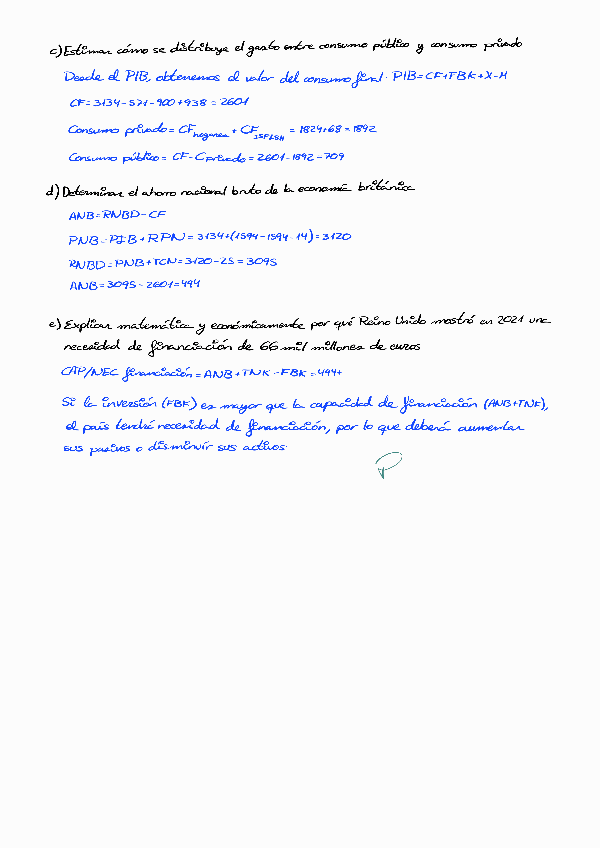 c) Estimar cómo se distribuye el gasto entre consumo público y consumo privado
Desde el PIB, obtenemos el valor del consumo final. PIB=CF+FBK+X-M
CF=3134-571-900+938=2601
Consumo privado=CF hogares + CF ISFLSH = 1824+68=1892
Consumo público=CF-Cprivado=2601-1892=709
d) Determinar el ahorro nacional bruto de la economía británica
ANB=RNBD-CF
PNB=PIB+RPN=3134+(1594-1594-14)=3120
RNBD=PNB+TCN=3120-25=3095
ANB=3095-2601=494
e) Explicar matemática y económicamente por qué Reino Unido mostró en 2021 una
necesidad de financiación de 66 mil millones de euros
CAP/NEC financiación=ANB+TNK-FBK=494+
Si la inversión (FBK) es mayor que la capacidad de financiación (ANB+TNK),
el país tendrá necesidad de financiación, por lo que deberá aumentar
sus pasivos o disminuir sus activos.